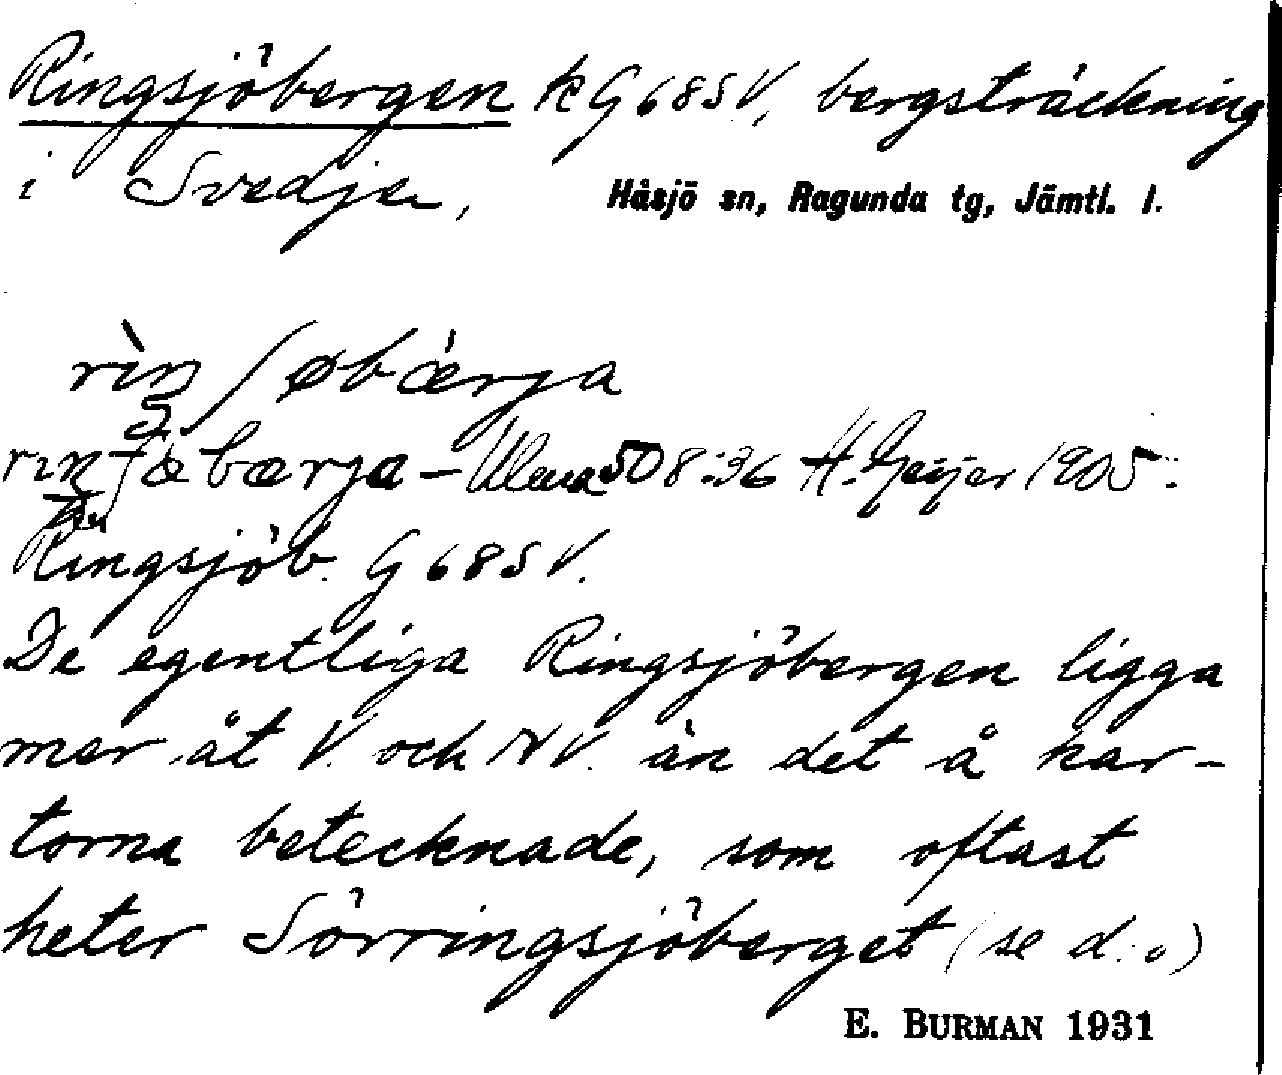 Ringsjöbergen k G 68 SV, bergsträckning
i Svedje, Håsjö sn, Ragunda tg, Jämtl. l.
H. Geijer 1905.
Ringsjöb. G 68 SV.
De egentliga Ringsjöbergen ligga
mer åt V. och NV. än det å kar-
torna betecknade, som oftast
heter Sörringsjöberget (se d. o)
E. BURMAN 1931